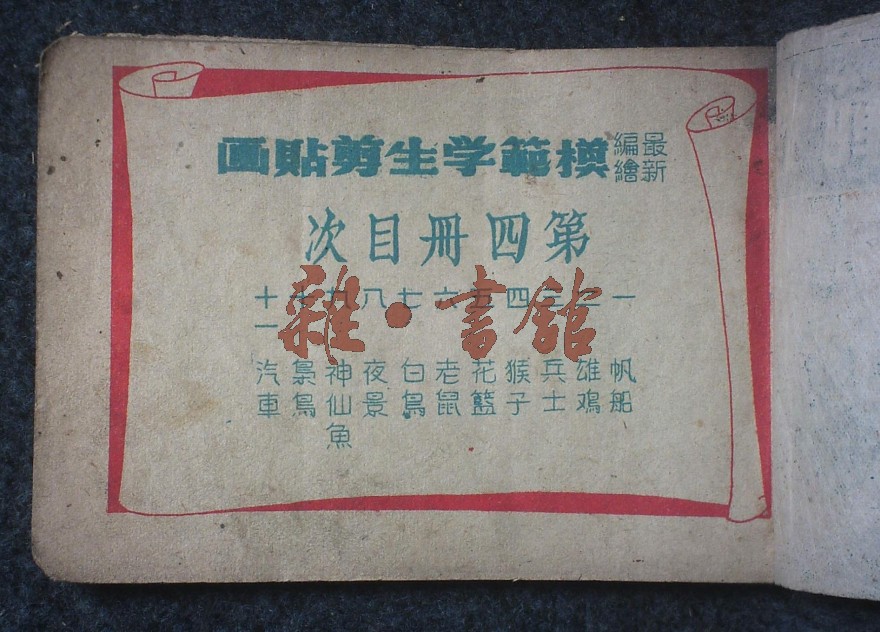 最新編繪
模範学生剪貼画
第四冊目次
一 帆船
二 雄鴉
三 兵士
四 猴子
五 花籃
六 老鼠
七 白鳥
八 夜景
九 神仙魚
十 梟鳥
十一 汽車
雜·書館